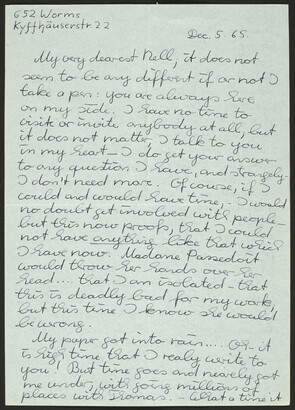 652 Worms
Kyffhäuserstr. 22
Dec. 5. 65.
My very dearest Nell, it does not
seem to be any different if or not I
take a pen: you are always here
on my side. I have no time to
visit or invite anybody at all, but
it does not matter, I talk to you
in my heart – I do get your answer
to any question I have, and strangely –
I don't need more. Of course, if I
could and would have time, – I would
no doubt get involved with people –
but this now proofs, that I could
not have anything like that which
I have now. Madame
would throw her hands over her
head.... that I am isolated – that
this is deadly bad for my work,
but this time I know she would
be wrong.
My paper got into rain.... Oh – it
is high time that I realy write to
you! But time goes and nearly got
me under, with going millions of
places with Thomas. – What a time it